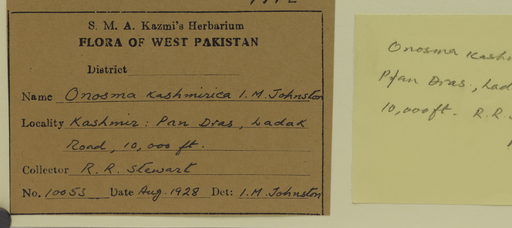 S. M. A. Kazmi's Herbarium
FLORA OF WEST PAKISTAN
District
Name Onosma kashmirica I.M. Johnston
Locality Kashmir: Pan Dras, Ladak
Road, 10,000 ft.
Collector R. R. Stewart
No. 10055 Date Aug. 1928 Det: I.M. Johnston
Onosma Kash
Dras, Lad
10,000 ft. R.R.